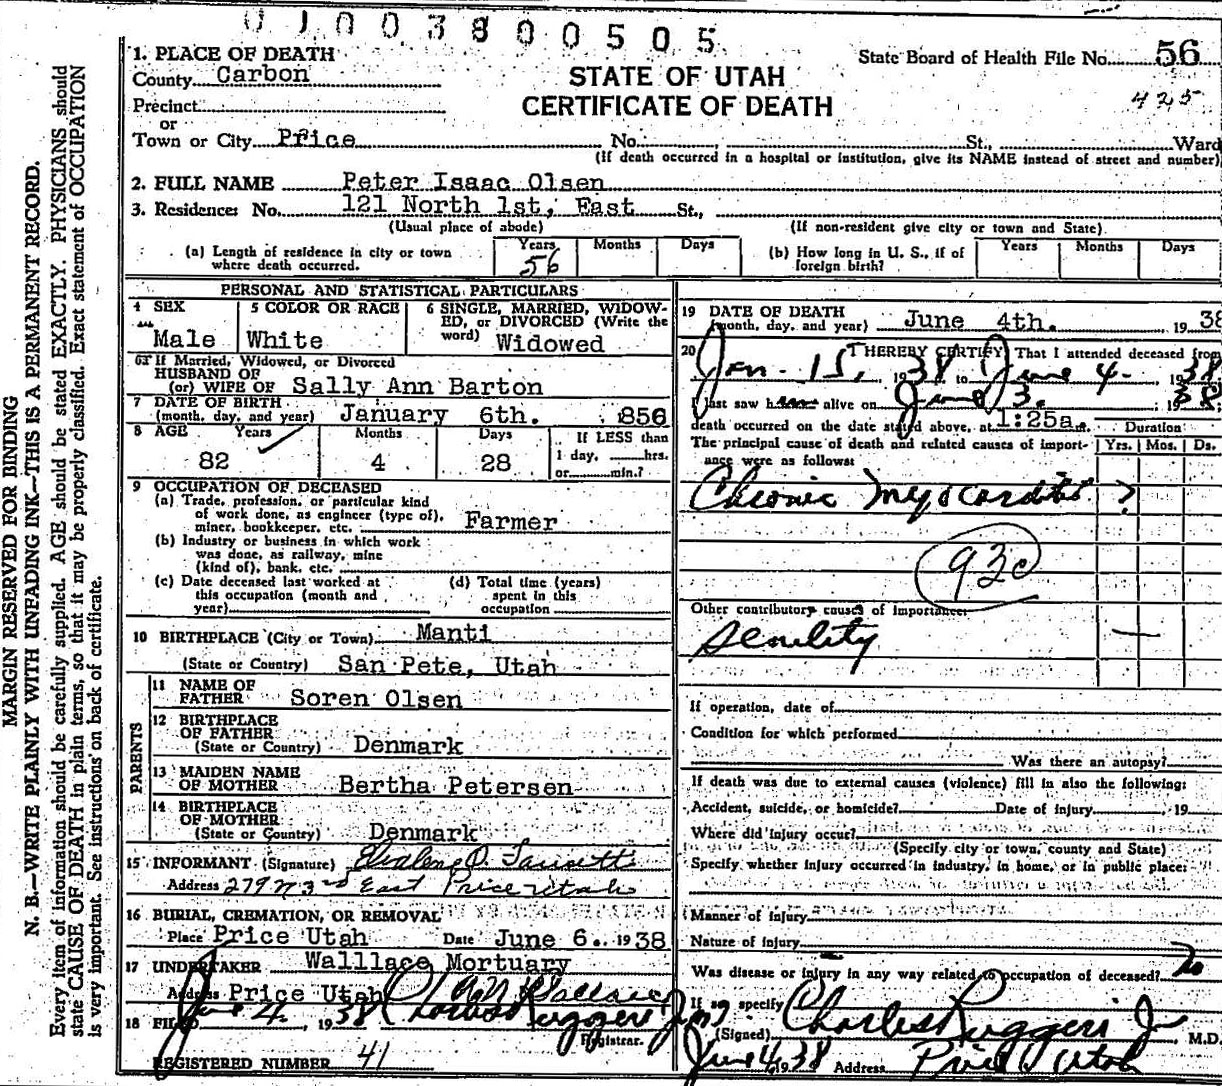 01003800505
1. PLACE OF DEATH
County Carbon
Precinct
or
Town or City Price No. St., Ward
(If death occurred in a hospital or institution, give its NAME instead of street and number)
STATE OF UTAH
CERTIFICATE OF DEATH
State Board of Health File No. 56
425
2. FULL NAME Peter Isaac Olsen
3. Residence: No. 121 North 1st, East St.,
(Usual place of abode) (If non-resident give city or town and State)
(a) Length of residence in city or town where death occurred. Years 56 Months Days
(b) How long in U. S., if of foreign birth? Years Months Days
PERSONAL AND STATISTICAL PARTICULARS
4 SEX Male
5 COLOR OR RACE White
6 SINGLE, MARRIED, WIDOWED, or DIVORCED (Write the word) Widowed
If Married, Widowed, or Divorced
HUSBAND OF
(or) WIFE OF Sally Ann Barton
7 DATE OF BIRTH
(month, day, and year) January 6th. 1856
8 AGE Years 82 Months 4 Days 28 If LESS than 1 day, hrs. or min.?
9 OCCUPATION OF DECEASED
(a) Trade, profession, or particular kind
of work done, as engineer (type of),
miner, bookkeeper, etc. Farmer
(b) Industry or business in which work
was done, as railway, mine
(kind of), bank, etc.
(c) Date deceased last worked at
this occupation (month and
year)
(d) Total time (years)
spent in this
occupation
10 BIRTHPLACE (City or Town) Manti
(State or Country) San Pete, Utah
PARENTS
11 NAME OF
FATHER Soren Olsen
12 BIRTHPLACE
OF FATHER
(State or Country) Denmark
13 MAIDEN NAME
OF MOTHER Bertha Petersen
14 BIRTHPLACE
OF MOTHER
(State or Country) Denmark
15 INFORMANT (Signature)
Address 279 N 3rd East Price Utah
16 BURIAL, CREMATION, OR REMOVAL
Place Price Utah Date June 6. 1938
17 UNDERTAKER Walllace Mortuary
Address Price Utah Wallace
18 FILED June 4. 1938 Charles Ruggeri Jr
Registrar.
REGISTERED NUMBER 41
19 DATE OF DEATH
(month, day, and year) June 4th. 1938
20 I HEREBY CERTIFY That I attended deceased from
Jan. 15, 1938 to June 4. 1938
last saw him alive on June 3. 1938
death occurred on the date stated above, at 1:25a m. Duration
The principal cause of death and related causes of importance were as follows: Yrs. Mos. Ds.
Chronic Myocarditis ?
93c
Other contributory causes of importance:
Senility —
If operation, date of
Condition for which performed
Was there an autopsy?
If death was due to external causes (violence) fill in also the following:
Accident, suicide, or homicide? Date of injury 19
Where did injury occur?
(Specify city or town, county and State)
Specify whether injury occurred in industry, in home, or in public place:
Manner of injury
Nature of injury
Was disease or injury in any way related to occupation of deceased? no
If so, specify
(Signed) Charles Ruggeri Jr M.D.
June 4, 1938 Address Price Utah
MARGIN RESERVED FOR BINDING
N. B.—WRITE PLAINLY WITH UNFADING INK—THIS IS A PERMANENT RECORD.
Every item of information should be carefully supplied. AGE should be stated EXACTLY. PHYSICIANS should
state CAUSE OF DEATH in plain terms, so that it may be properly classified. Exact statement of OCCUPATION
is very important. See instructions on back of certificate.